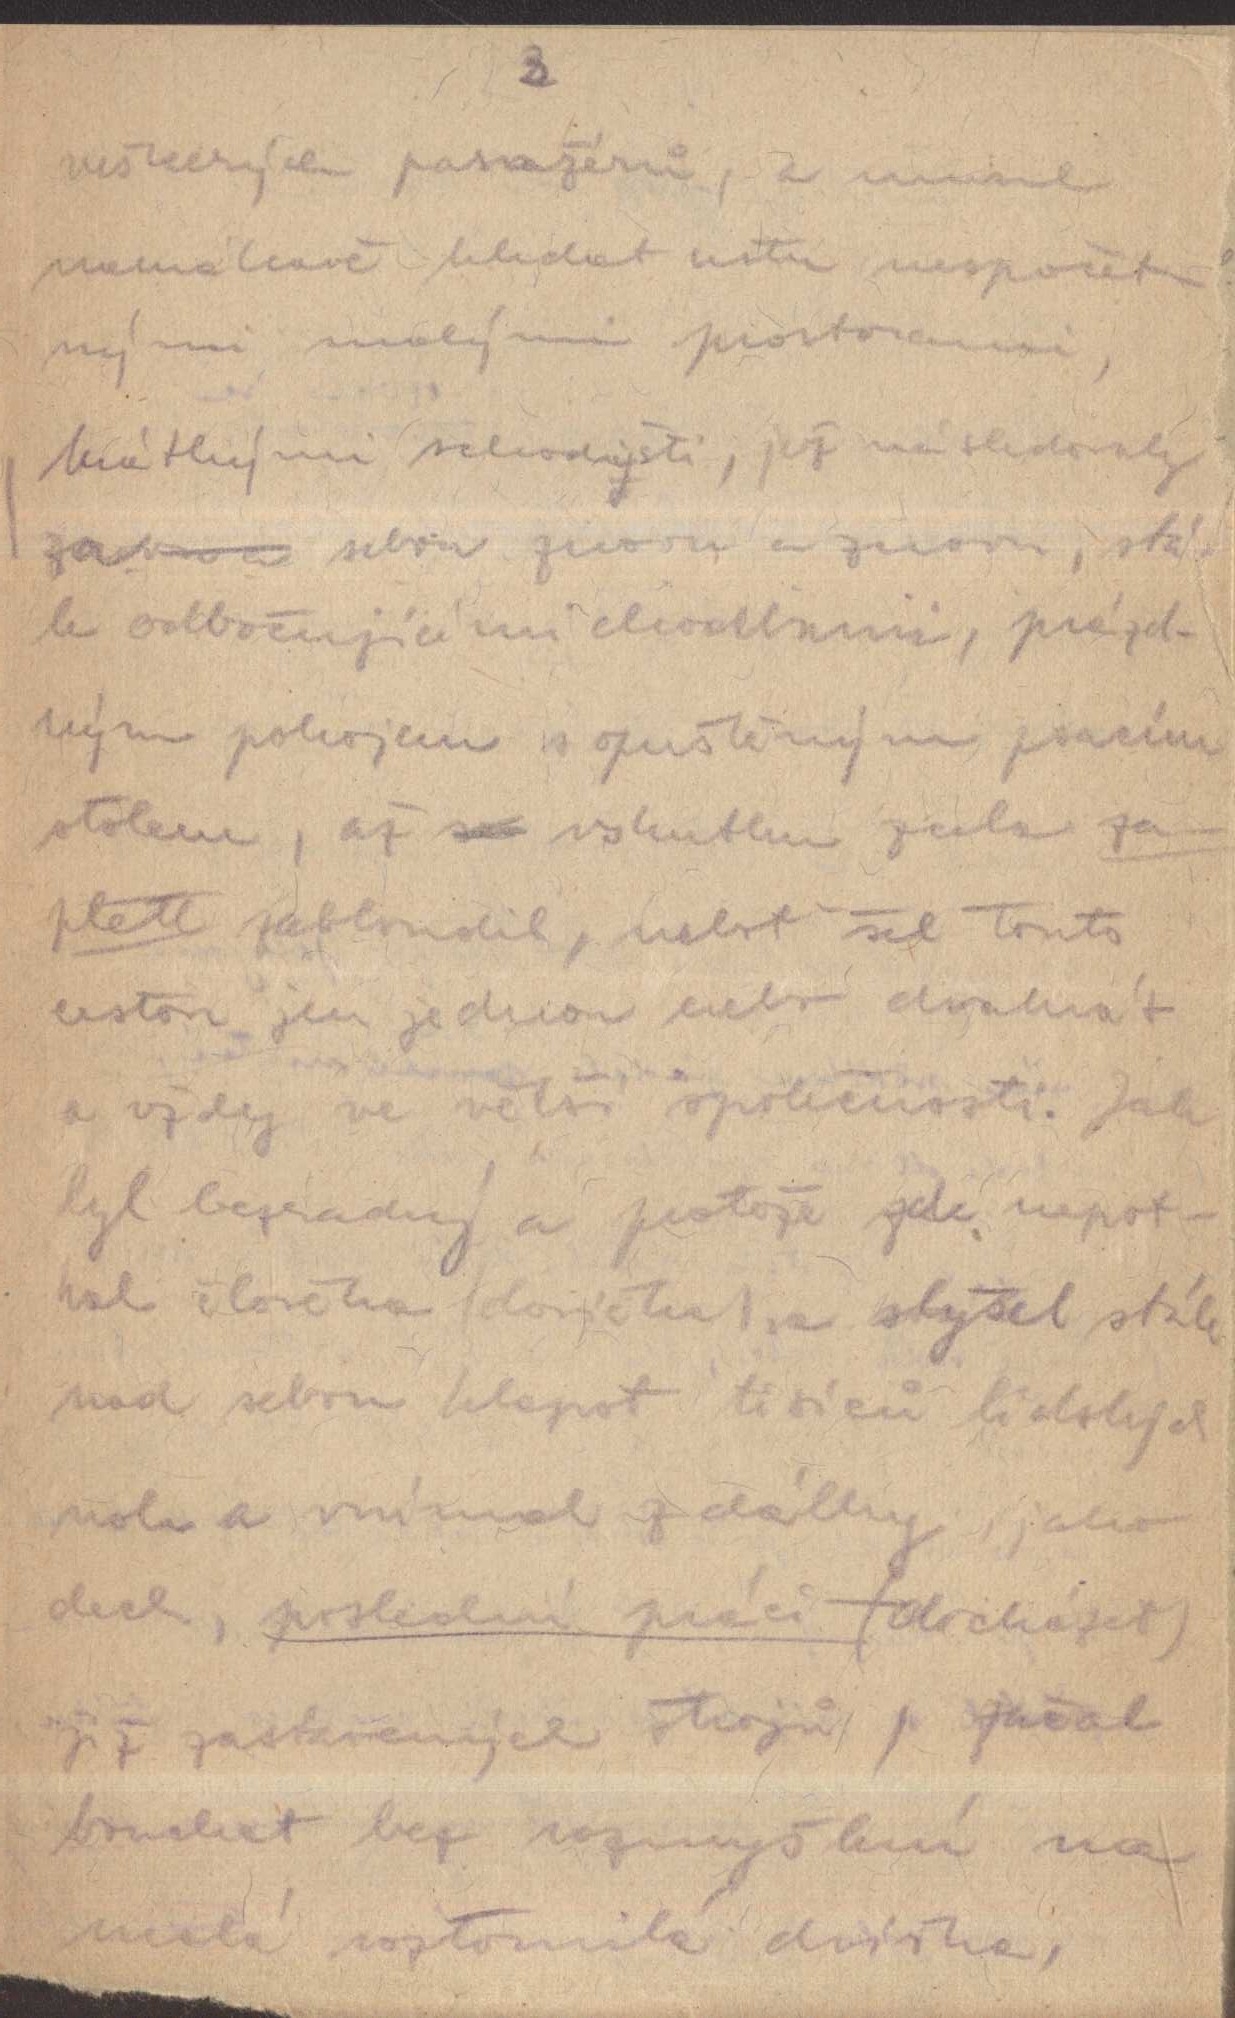 3
veškerých pasažérů, a musel
namáhavě hledat cestu nespočet-
nými malými prostorami,
krátkými schodyšti, jež následovaly
za sebou znovu a znovu, stá-
le odbočujícími chodbami, prázd-
ným pokojem s opuštěným psacím
stolem, až se vskutku zcela za-
pletl zabloudil, nebot šel touto
cestou jen jednou nebo dvakrát
a vždy ve větší společnosti. Jak
byl bezradný a protože zde nepot-
kal človeka (dovičku), a slyšel stále
nad sebou klapot tisíců lidských
noh a vnímal z dálky, jako
dech, poslední práci (docházet)
již zastavených strojů, začal
bouchat bez rozmyšlení na
malá roztomilá dvířka,